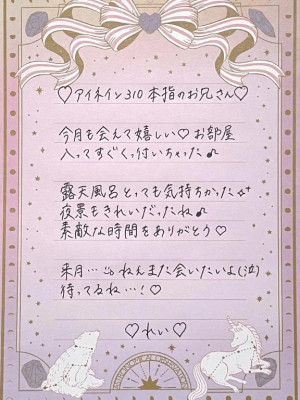 ♡アイネイン310 本指のお兄さん♡
今月も会えて嬉しい♡お部屋
入ってすぐくっ付いちゃった♪
露天風呂とっても気持ちかった
夜景もきれいだったね♪
素敵な時間をありがとう♡
来月… ねんまた会いたいよ(泣)
待ってるね…!♡
♡れい♡